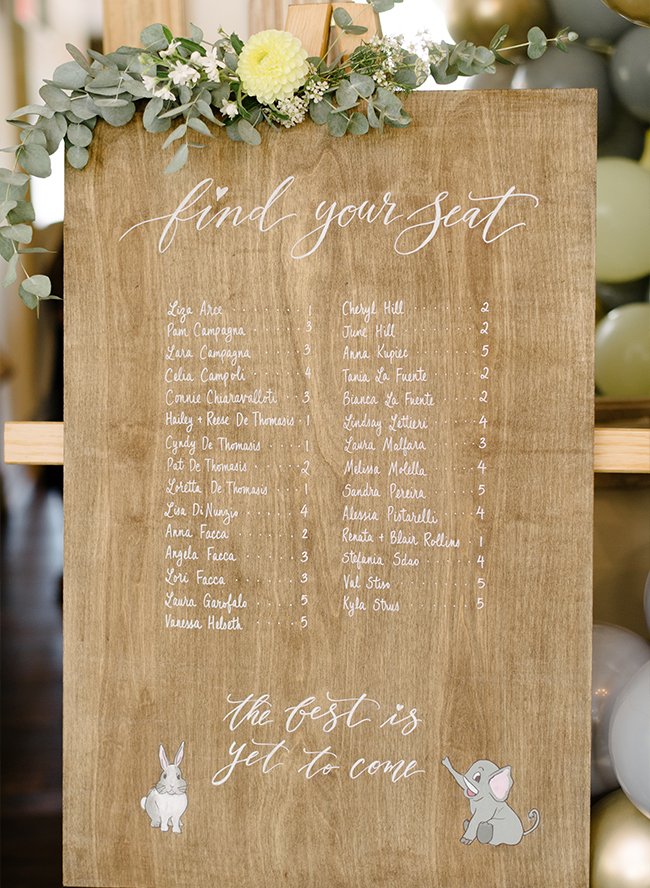 find your seat
Liza Arce ..... 1
Pam Campagna ..... 3
Lara Campagna ..... 3
Celia Campoli ..... 4
Connie Chiaravalloti .. 3
Hailey + Reese De Thomasis . 1
Cyndy De Thomasis .... 1
Pat De Thomasis ..... 2
Loretta De Thomasis .... 1
Lisa DiNunzio ..... 4
Anna Facca ..... 2
Angela Facca ..... 3
Lori Facca ..... 3
Laura Garofalo ..... 5
Vanessa Helseth ..... 5
Cheryl Hill ..... 2
June Hill ..... 2
Anna Kupiec ..... 5
Tania La Fuente ..... 2
Bianca La Fuente .... 2
Lindsay Lettieri ..... 4
Laura Malfara ..... 3
Melissa Molella ..... 4
Sandra Pereira ..... 5
Alessia Pistarelli .... 4
Renata + Blair Rollins . 1
Stefania Sdao ..... 4
Val Stiso ..... 5
Kyla Strus ..... 5
the best is
yet to come